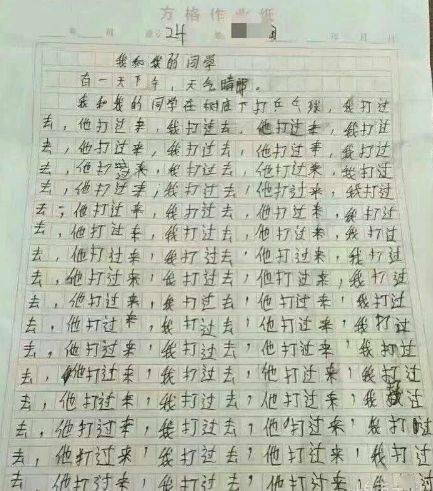 方格作业纸
24
我和我的同学
有一天下午，天气晴朗。
我和我的同学在树底下打乒乓球，我打过
去，他打过来，我打过去，他打过来，我打过
去，他打过来，我打过去，他打过来，我打过
去，他打过来，我打过去，他打过来，我打过
去，他打过来，我打过去，他打过来，我打过
去，他打过来，我打过去，他打过来，我打过
去，他打过来，我打过去，他打过来，我打过
去，他打过来，我打过去，他打过来，我打过
去，他打过来，我打过去，他打过来，我打过
去，他打过来，我打过去，他打过来，我打过
去，他打过来，我打过去，他打过来，我打过
去，他打过来，我打过去，他打过来，我打过
去，他打过来，我打过去，他打过来，我打过
去，他打过来，我打过去，他打过来，我过
去，他打过来，我打过去，他打过来，我打过
去，他打过来，我打过去，他打过来，我打过
去，他打过来，我打过去，他打过来，我过